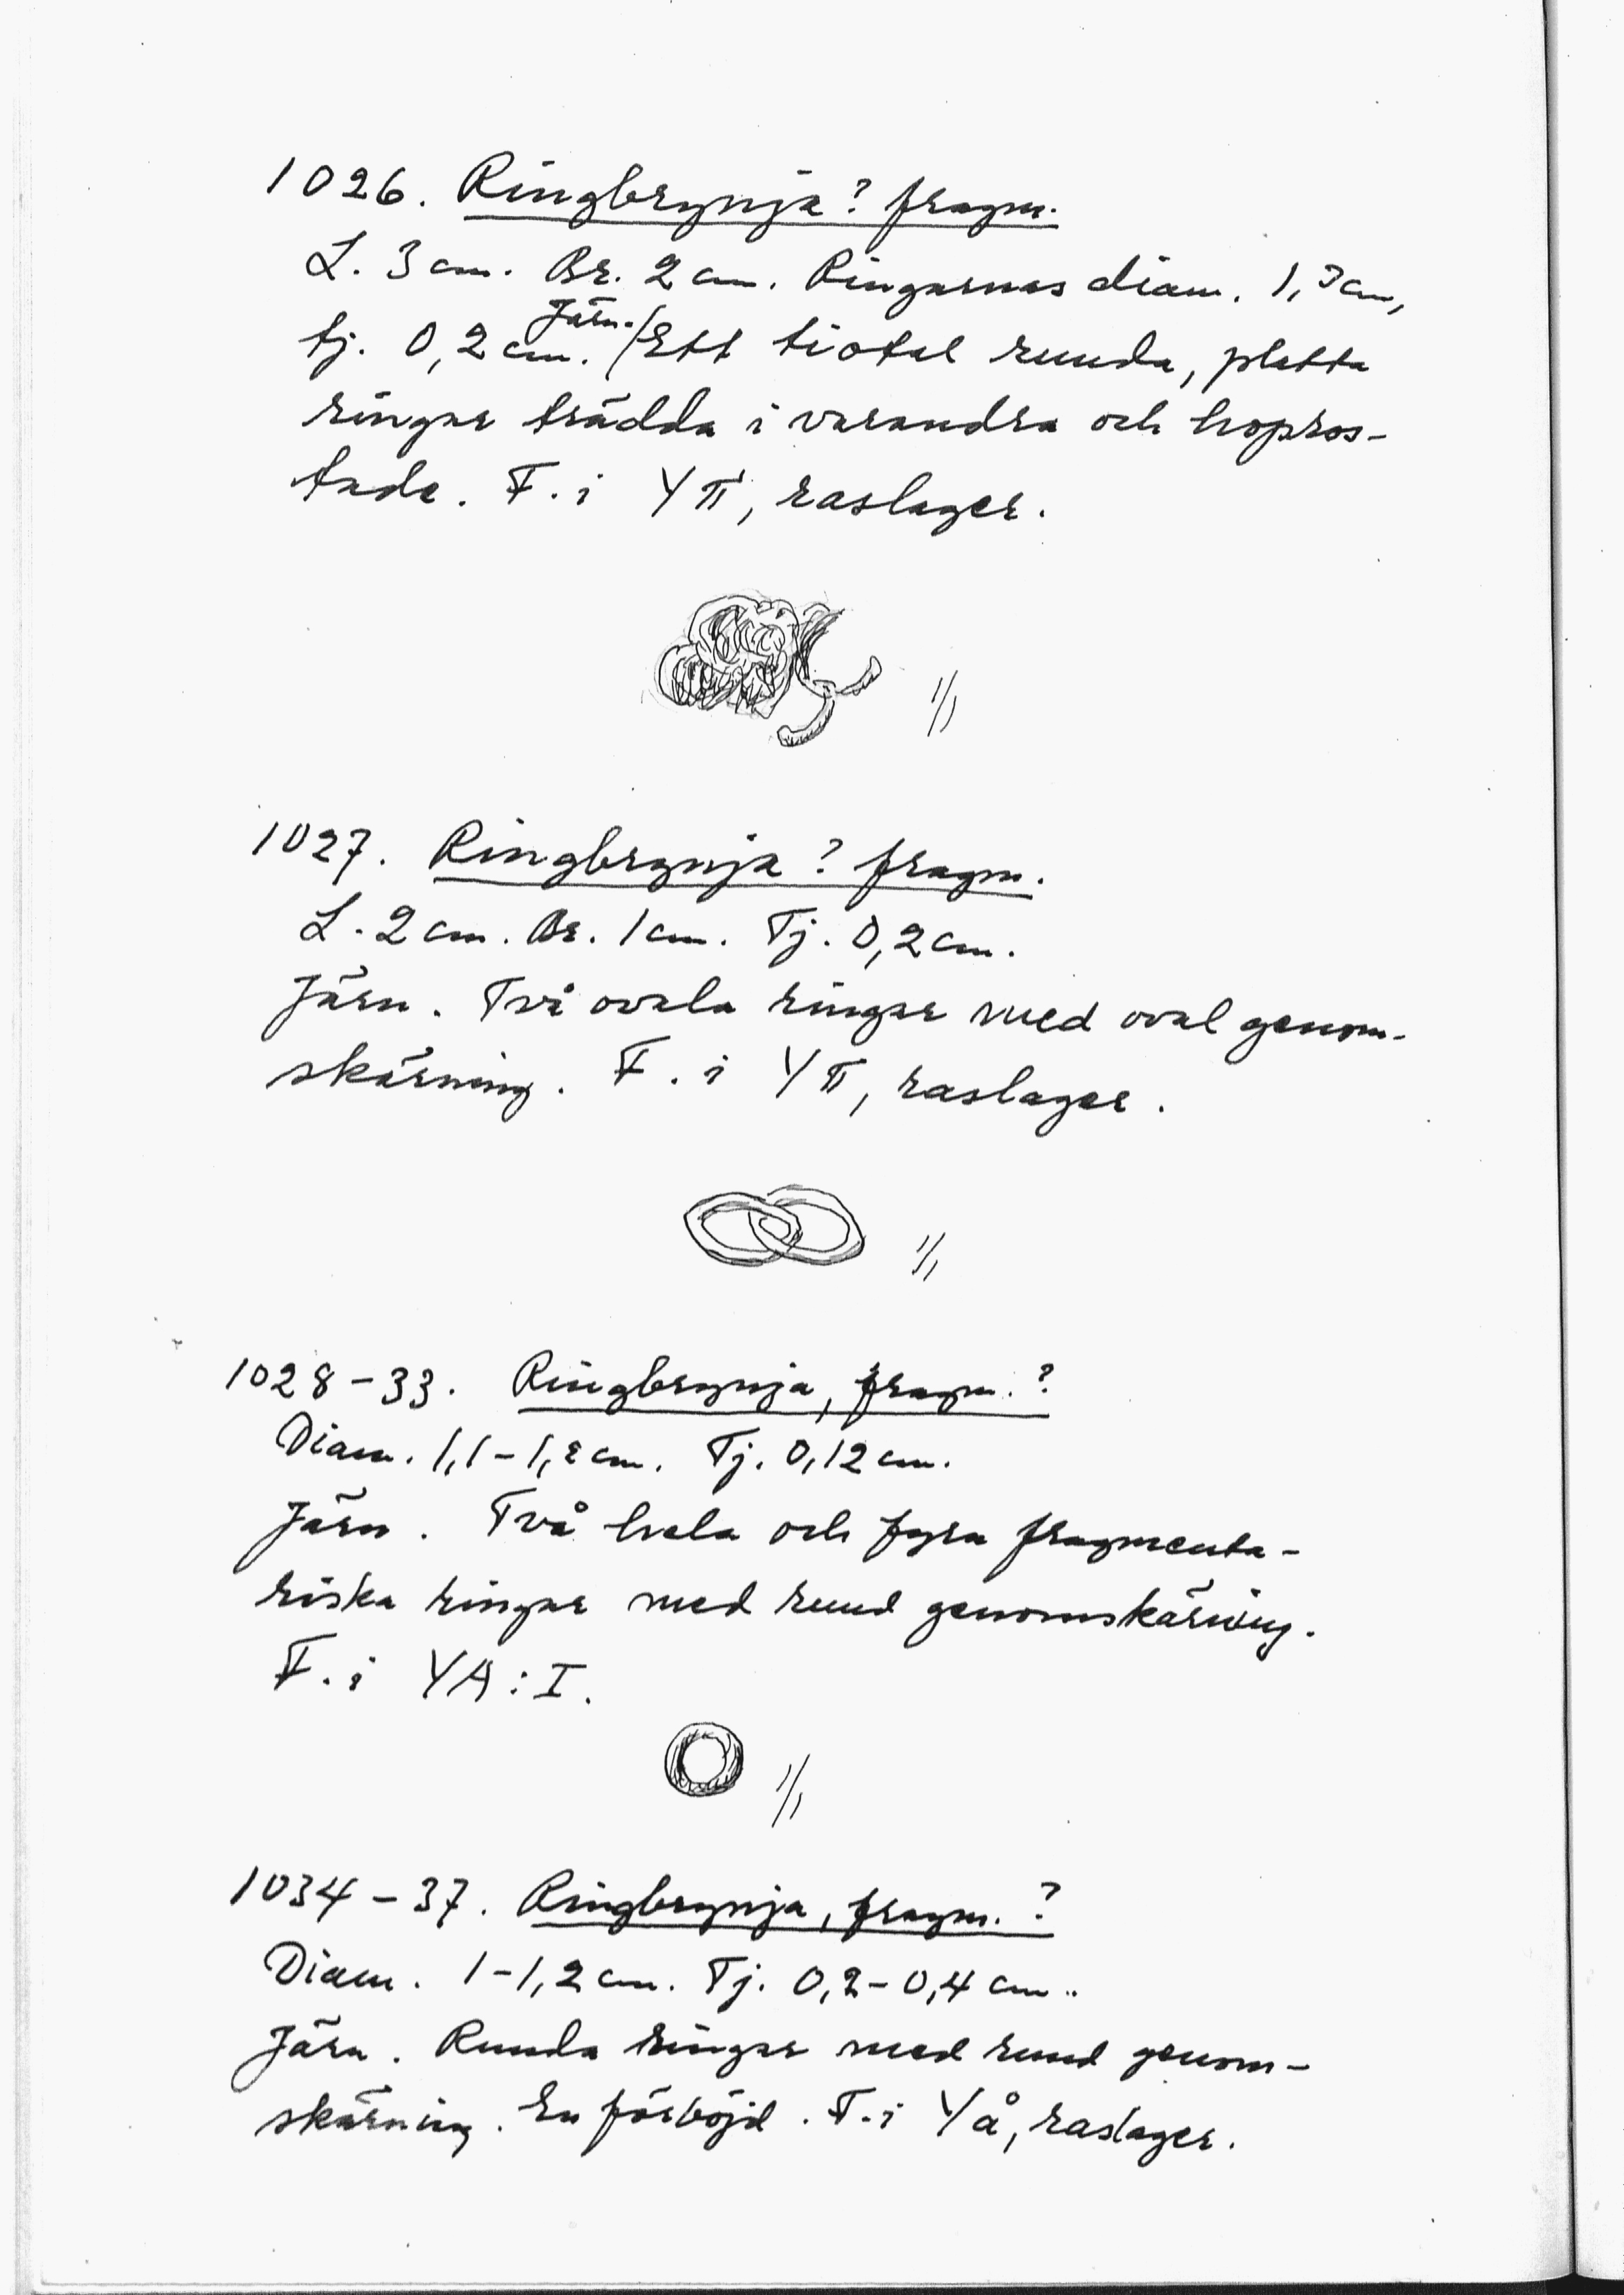 1026. Ringbrynja? fragm.
L. 3 cm. Br. 2 cm. Ringarnas diam. 1,3 cm,
tj. 0,2 cm. Järn. / Ett tiotal runda, platta
ringar trädda i varandra och hopros-
tade. F. i YΠ, raslager.
1/1
1027. Ringbrynja? fragm.
L. 2 cm. Br. 1 cm. Tj. 0,2 cm.
Järn. Två ovala ringar med oval genom-
skärning. F. i YΠ, raslager.
1/1
1028-33. Ringbrynja, fragm.?
Diam. 1,1-1,2 cm. Tj. 0,12 cm.
Järn. Två hela och fyra fragmenta-
riska ringar med rund genomskärning.
F. i YA:I.
1/1
1034-37. Ringbrynja, fragm.?
Diam. 1-1,2 cm. Tj. 0,2-0,4 cm.
Järn. Runda ringar med rund genom-
skärning. En förböjd. F. i Yå, raslager.